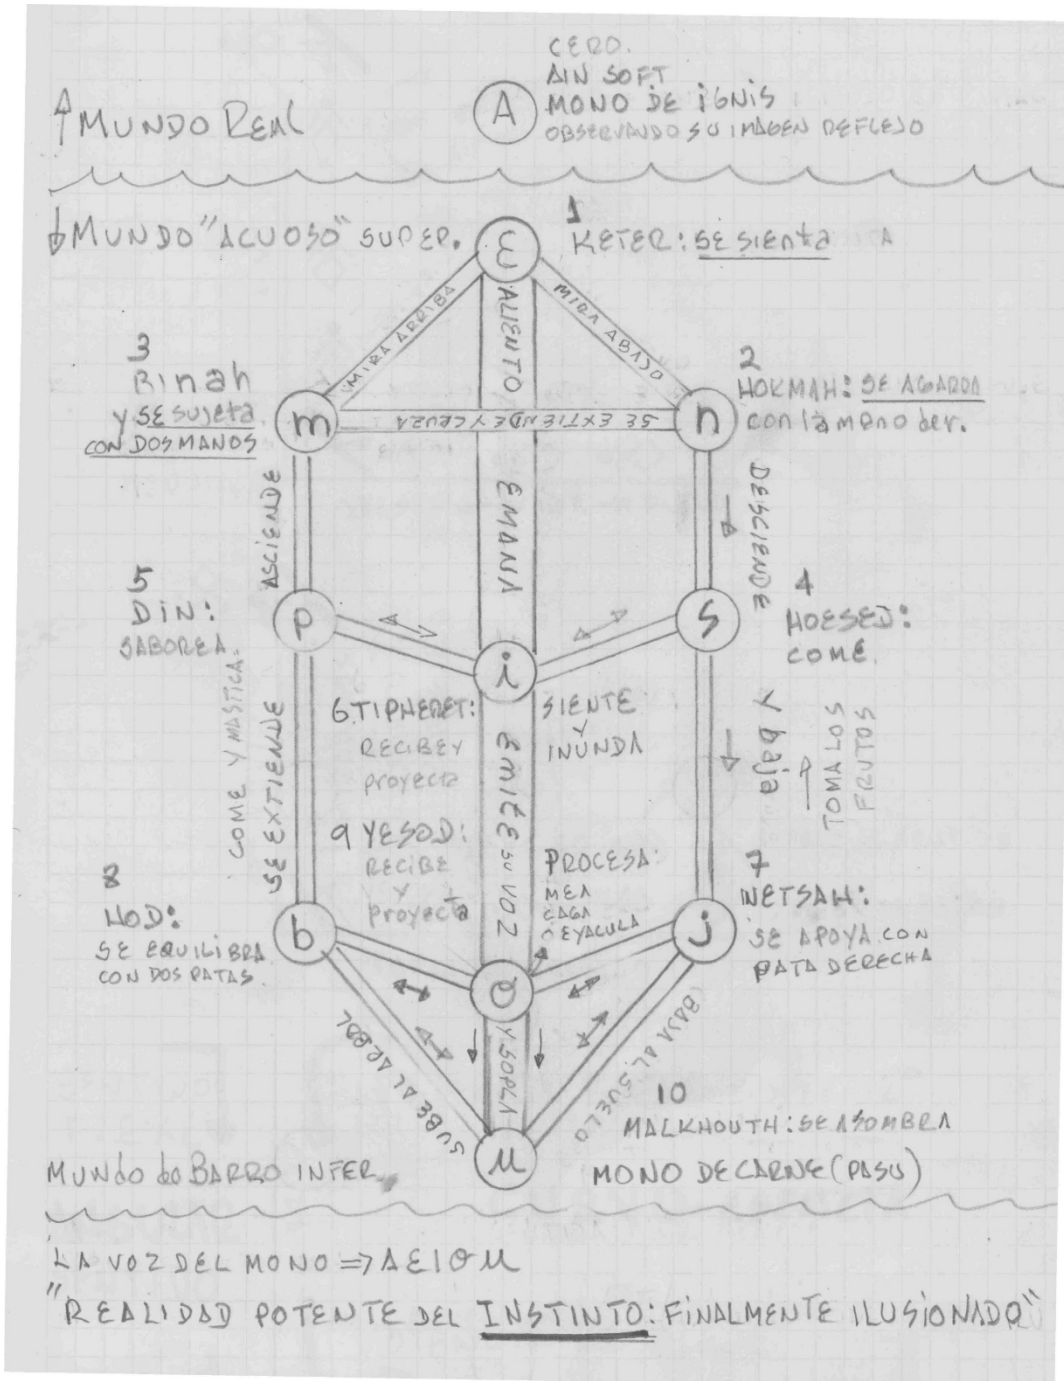 CERO.
AIN SOFT
A
MONO DE IGNIS
OBSERVANDO SU IMAGEN REFLEJO
↑ MUNDO REAL
↓ MUNDO "ACUOSO" SUPER.
ε
1
KETER: SE SIENTA
MIRA ARRIBA
ALIENTO
MIRA ABAJO
3
Binah
y SE sujeta
CON DOS MANOS
m
SE EXTIENDE Y CRUZA
n
2
HOKMAH: SE AGARRA
con la mano der.
ASCIENDE
EMANA
DESCIENDE
5
DIN:
SABOREA.
P
S
4
HOESED:
COME.
i
6 TIPHERET:
RECIBE Y
proyecta
SIENTE
Y
INUNDA
COME Y MASTICA.
SE EXTIENDE
EMITE SU VOZ
Y baja
TOMA LOS
FRUTOS
9 YESOD:
RECIBE
Y
proyecta
PROCESA:
MEA
CAGA
O EYACULA
8
HOD:
SE EQUILIBRA
CON DOS PATAS.
b
O
j
7
NETSAH:
SE APOYA CON
PATA DERECHA
SUBE AL ARBOL
Y SOPLA
BAJA AL SUELO
10
MALKHOUTH: SE ASOMBRA
MONO DE CARNE (PASU)
μ
MUNDO de BARRO INFER.
LA VOZ DEL MONO => AEIOμ
"REALIDAD POTENTE DEL INSTINTO: FINALMENTE ILUSIONADO"